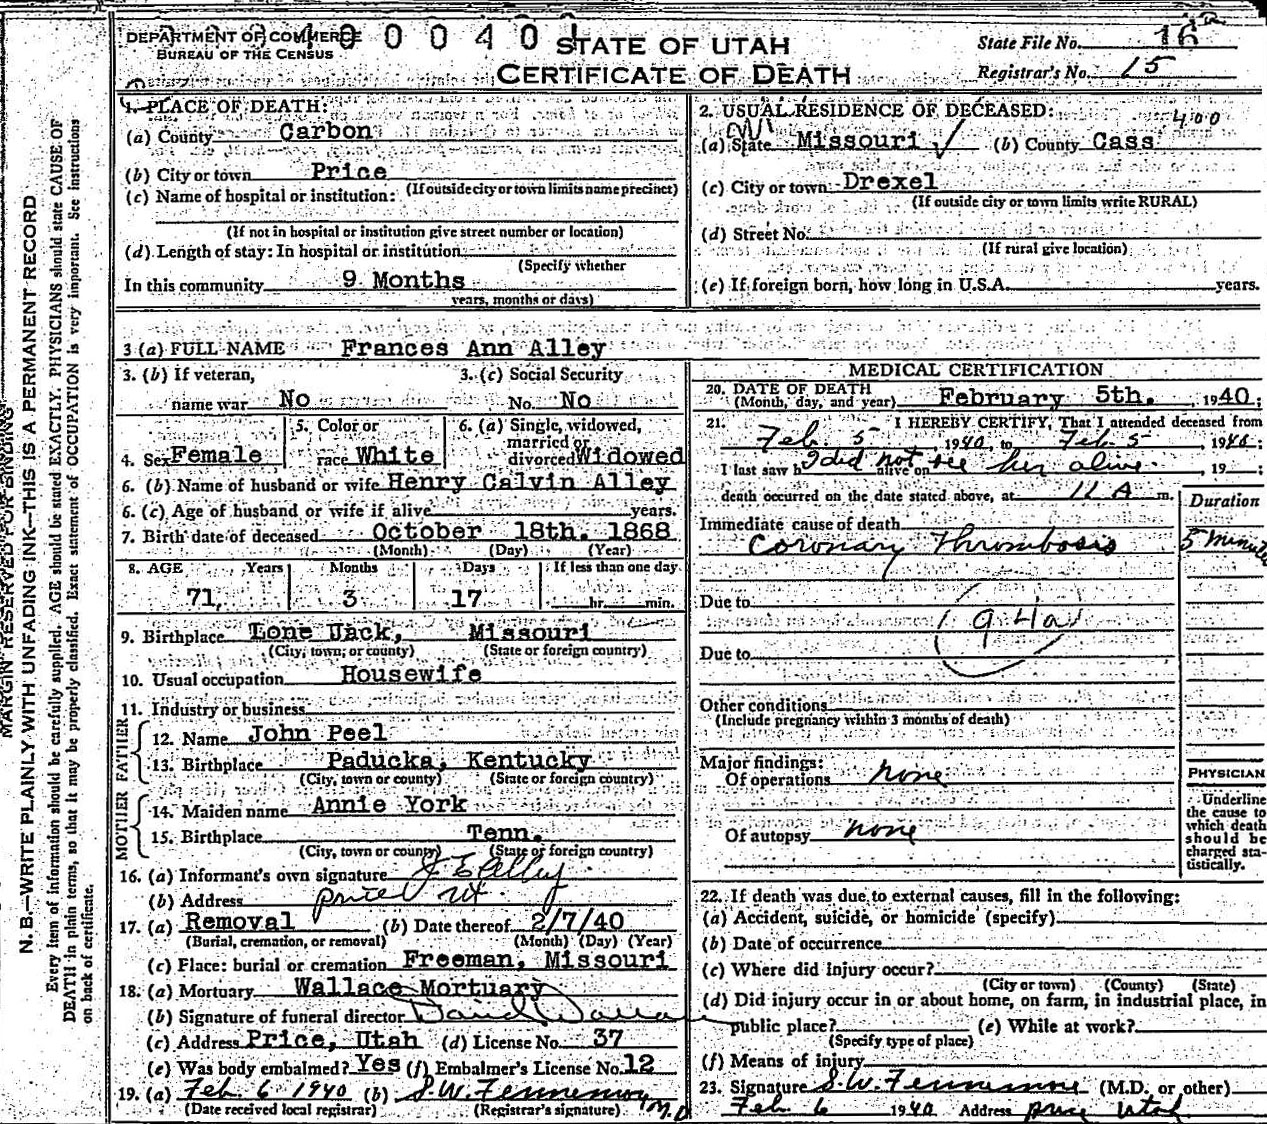 DEPARTMENT OF COMMERCE
BUREAU OF THE CENSUS
0 0 4 0
STATE OF UTAH
CERTIFICATE OF DEATH
State File No. 16
Registrar's No. 15
MARGIN RESERVED FOR BINDING
N. B.—WRITE PLAINLY WITH UNFADING INK—THIS IS A PERMANENT RECORD
Every item of information should be carefully supplied. AGE should be stated EXACTLY. PHYSICIANS should state CAUSE OF
DEATH in plain terms, so that it may be properly classified. Exact statement of OCCUPATION is very important. See instructions
on back of certificate.
1. PLACE OF DEATH:
(a) County Carbon
(b) City or town Price
(If outside city or town limits name precinct)
(c) Name of hospital or institution:
(If not in hospital or institution give street number or location)
(d) Length of stay: In hospital or institution
(Specify whether
In this community 9 Months
years, months or days)
2. USUAL RESIDENCE OF DECEASED:
400
(a) State Missouri ✓ (b) County Cass
(c) City or town Drexel
(If outside city or town limits write RURAL)
(d) Street No.
(If rural give location)
(e) If foreign born, how long in U.S.A. years.
3 (a) FULL NAME Frances Ann Alley
3. (b) If veteran,
name war No
3. (c) Social Security
No. No
4. Sex Female
5. Color or
race White
6. (a) Single, widowed,
married or
divorced Widowed
6. (b) Name of husband or wife Henry Calvin Alley
6. (c) Age of husband or wife if alive years.
7. Birth date of deceased October 18th. 1868
(Month) (Day) (Year)
8. AGE Years Months Days If less than one day
71, 3 17 hr. min.
9. Birthplace Lone Jack, Missouri
(City, town, or county) (State or foreign country)
10. Usual occupation Housewife
11. Industry or business
FATHER
12. Name John Peel
13. Birthplace Paducka, Kentucky
(City, town or county) (State or foreign country)
MOTHER
14. Maiden name Annie York
15. Birthplace Tenn.
(City, town or county) (State or foreign country)
16. (a) Informant's own signature J E Alley
(b) Address Price Ut.
17. (a) Removal (b) Date thereof 2/7/40
(Burial, cremation, or removal) (Month) (Day) (Year)
(c) Place: burial or cremation Freeman, Missouri
18. (a) Mortuary Wallace Mortuary
(b) Signature of funeral director David Wallace
(c) Address Price, Utah (d) License No. 37
(e) Was body embalmed? Yes (f) Embalmer's License No. 12
19. (a) Feb. 6 1940 (b) S.W. Fennemore M.D
(Date received local registrar) (Registrar's signature)
MEDICAL CERTIFICATION
20. DATE OF DEATH
(Month, day, and year) February 5th. , 1940;
21. I HEREBY CERTIFY, That I attended deceased from
Feb. 5 , 1940, to Feb. 5 , 1940;
I last saw h alive on , 19 ;
I did not see her alive.
death occurred on the date stated above, at 11 A m.
Duration
Immediate cause of death
Coronary Thrombosis 5 minutes
Due to
94a
Due to
Other conditions
(Include pregnancy within 3 months of death)
Major findings:
Of operations none
Of autopsy none
PHYSICIAN
Underline
the cause to
which death
should be
charged sta-
tistically.
22. If death was due to external causes, fill in the following:
(a) Accident, suicide, or homicide (specify)
(b) Date of occurrence
(c) Where did injury occur?
(City or town) (County) (State)
(d) Did injury occur in or about home, on farm, in industrial place, in
public place? (e) While at work?
(Specify type of place)
(f) Means of injury
23. Signature S.W. Fennemore (M.D. or other)
Feb. 6 1940 Address Price Utah